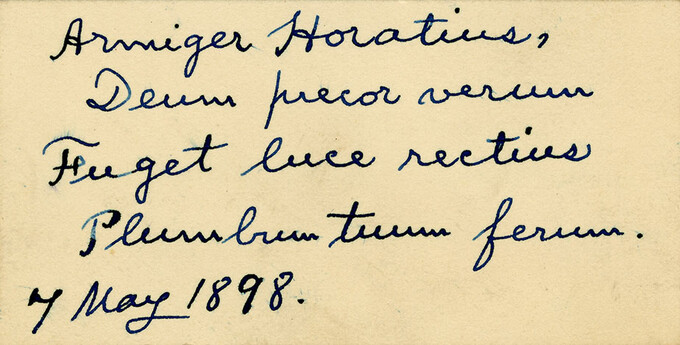 Armiger Horatius,
Deum precor verum
Fuget luce rectius
Plumbum tuum ferum.
7 May 1898.